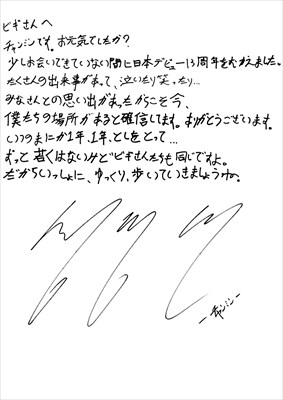 ビギさんへ
チャンミンです。お元気でしたか?
少しお会いできていない間に日本デビュー13周年をむかえました。
たくさんの出来事があって、泣いたり笑ったり…
みなさんとの思い出があったからこそ今、
僕たちの場所があると確信してます。ありがとうございます。
いつのまにか1年、1年、としをとって…
ずっと若くはないけどビギさんたちも同じですよ。
だからいっしょに、ゆっくり、歩いていきましょうね。
ーチャンミンー